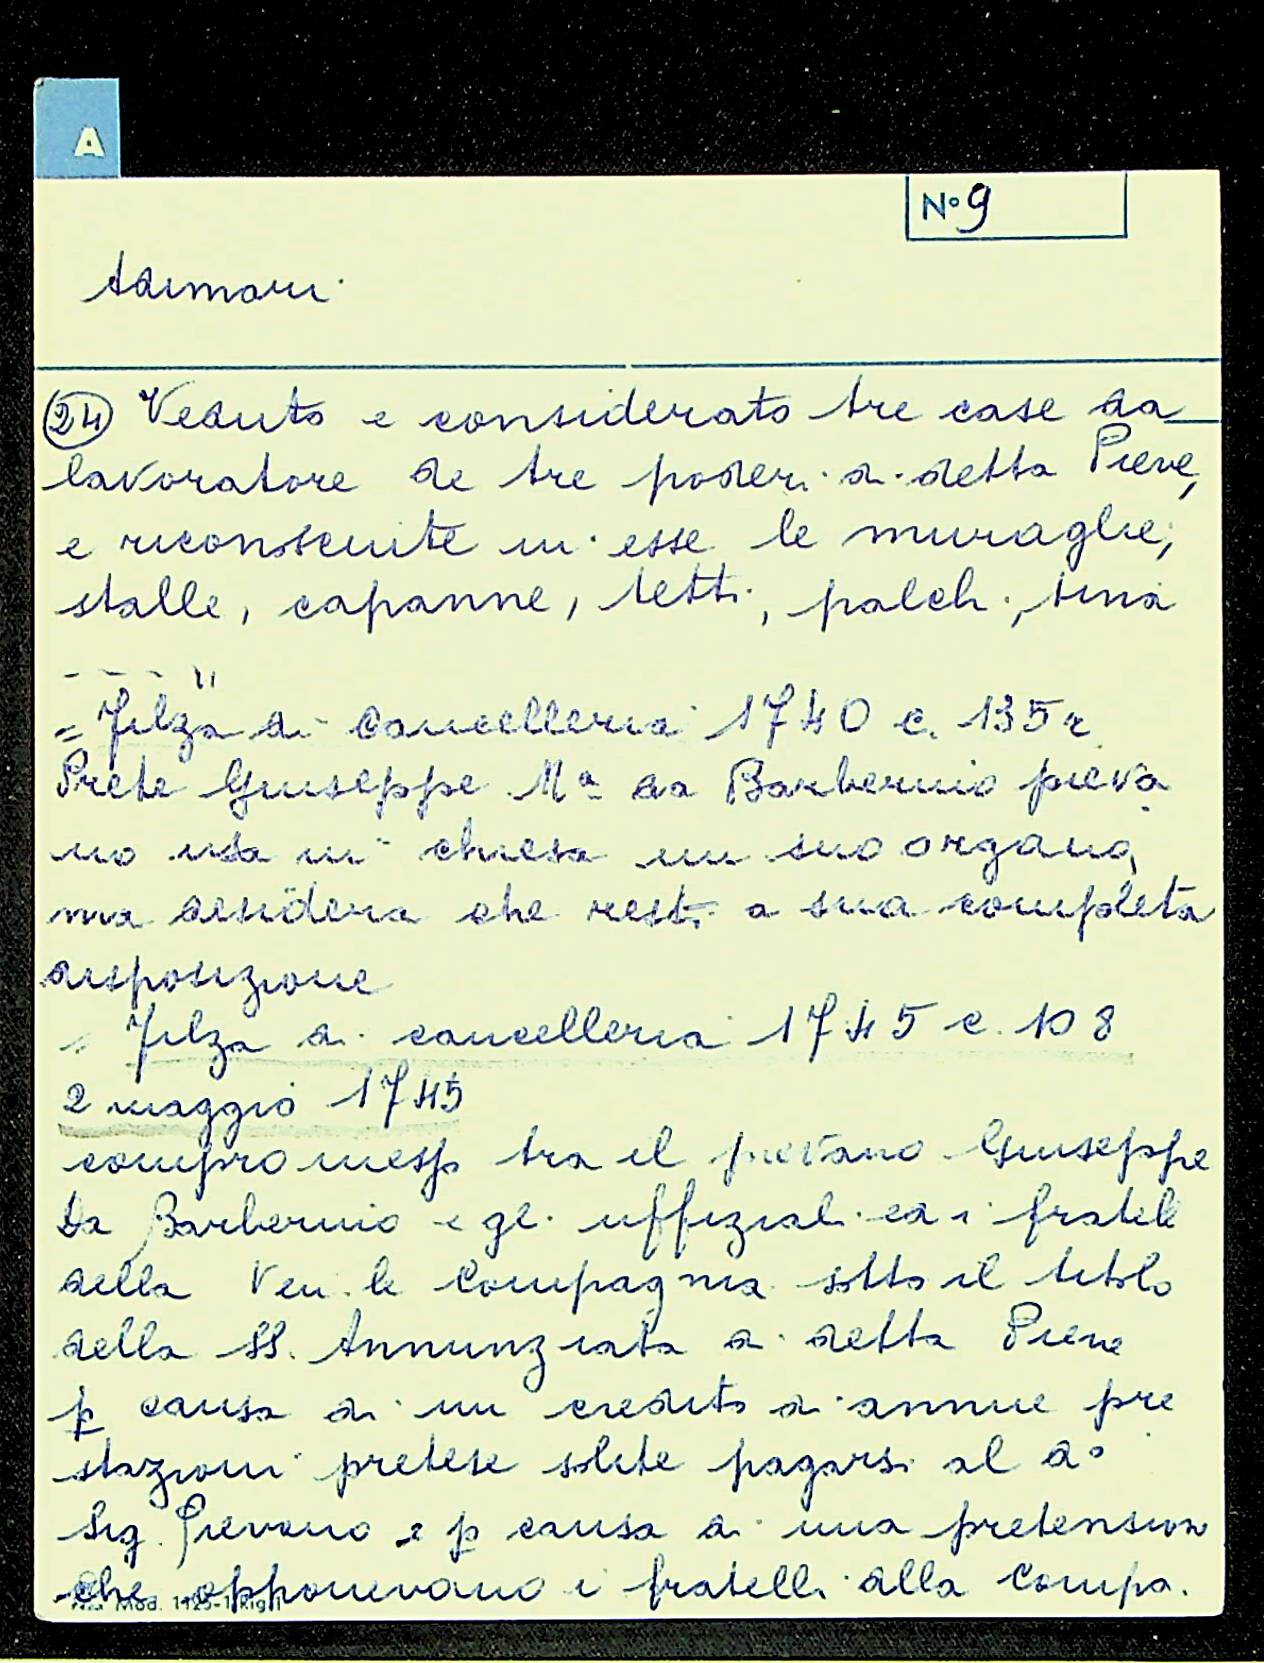 A
N° 9
Adimari
(24) Veduto e considerato tre case da
lavoratore de tre poderi di detta Pieve,
e riconsciute in esse le muraglie,
stalle, capanne, tetti, palchi, tina
- - - - "
= Filza di cancelleria 1740 c. 135 r
Prete Giuseppe Mª da Barberino pieva
no usa in chiesa un suo organo,
ma desidera che resti a sua completa
disposizione
= Filza di cancelleria 1745 c. 108
2 maggio 1745
compromesso tra il pievano Giuseppe
Da Barberino e gli uffiziali ed i fratelli
della Ven.le Compagnia sotto il titolo
della SS. Annunziata di detta Pieve
p causa di un credito di annue pre
stazioni pretese solite pagarsi al d°
Sig. Pievano e p causa di una pretensione
che opponevano i fratelli alla Compa.
Mod. 1125-1 Righi